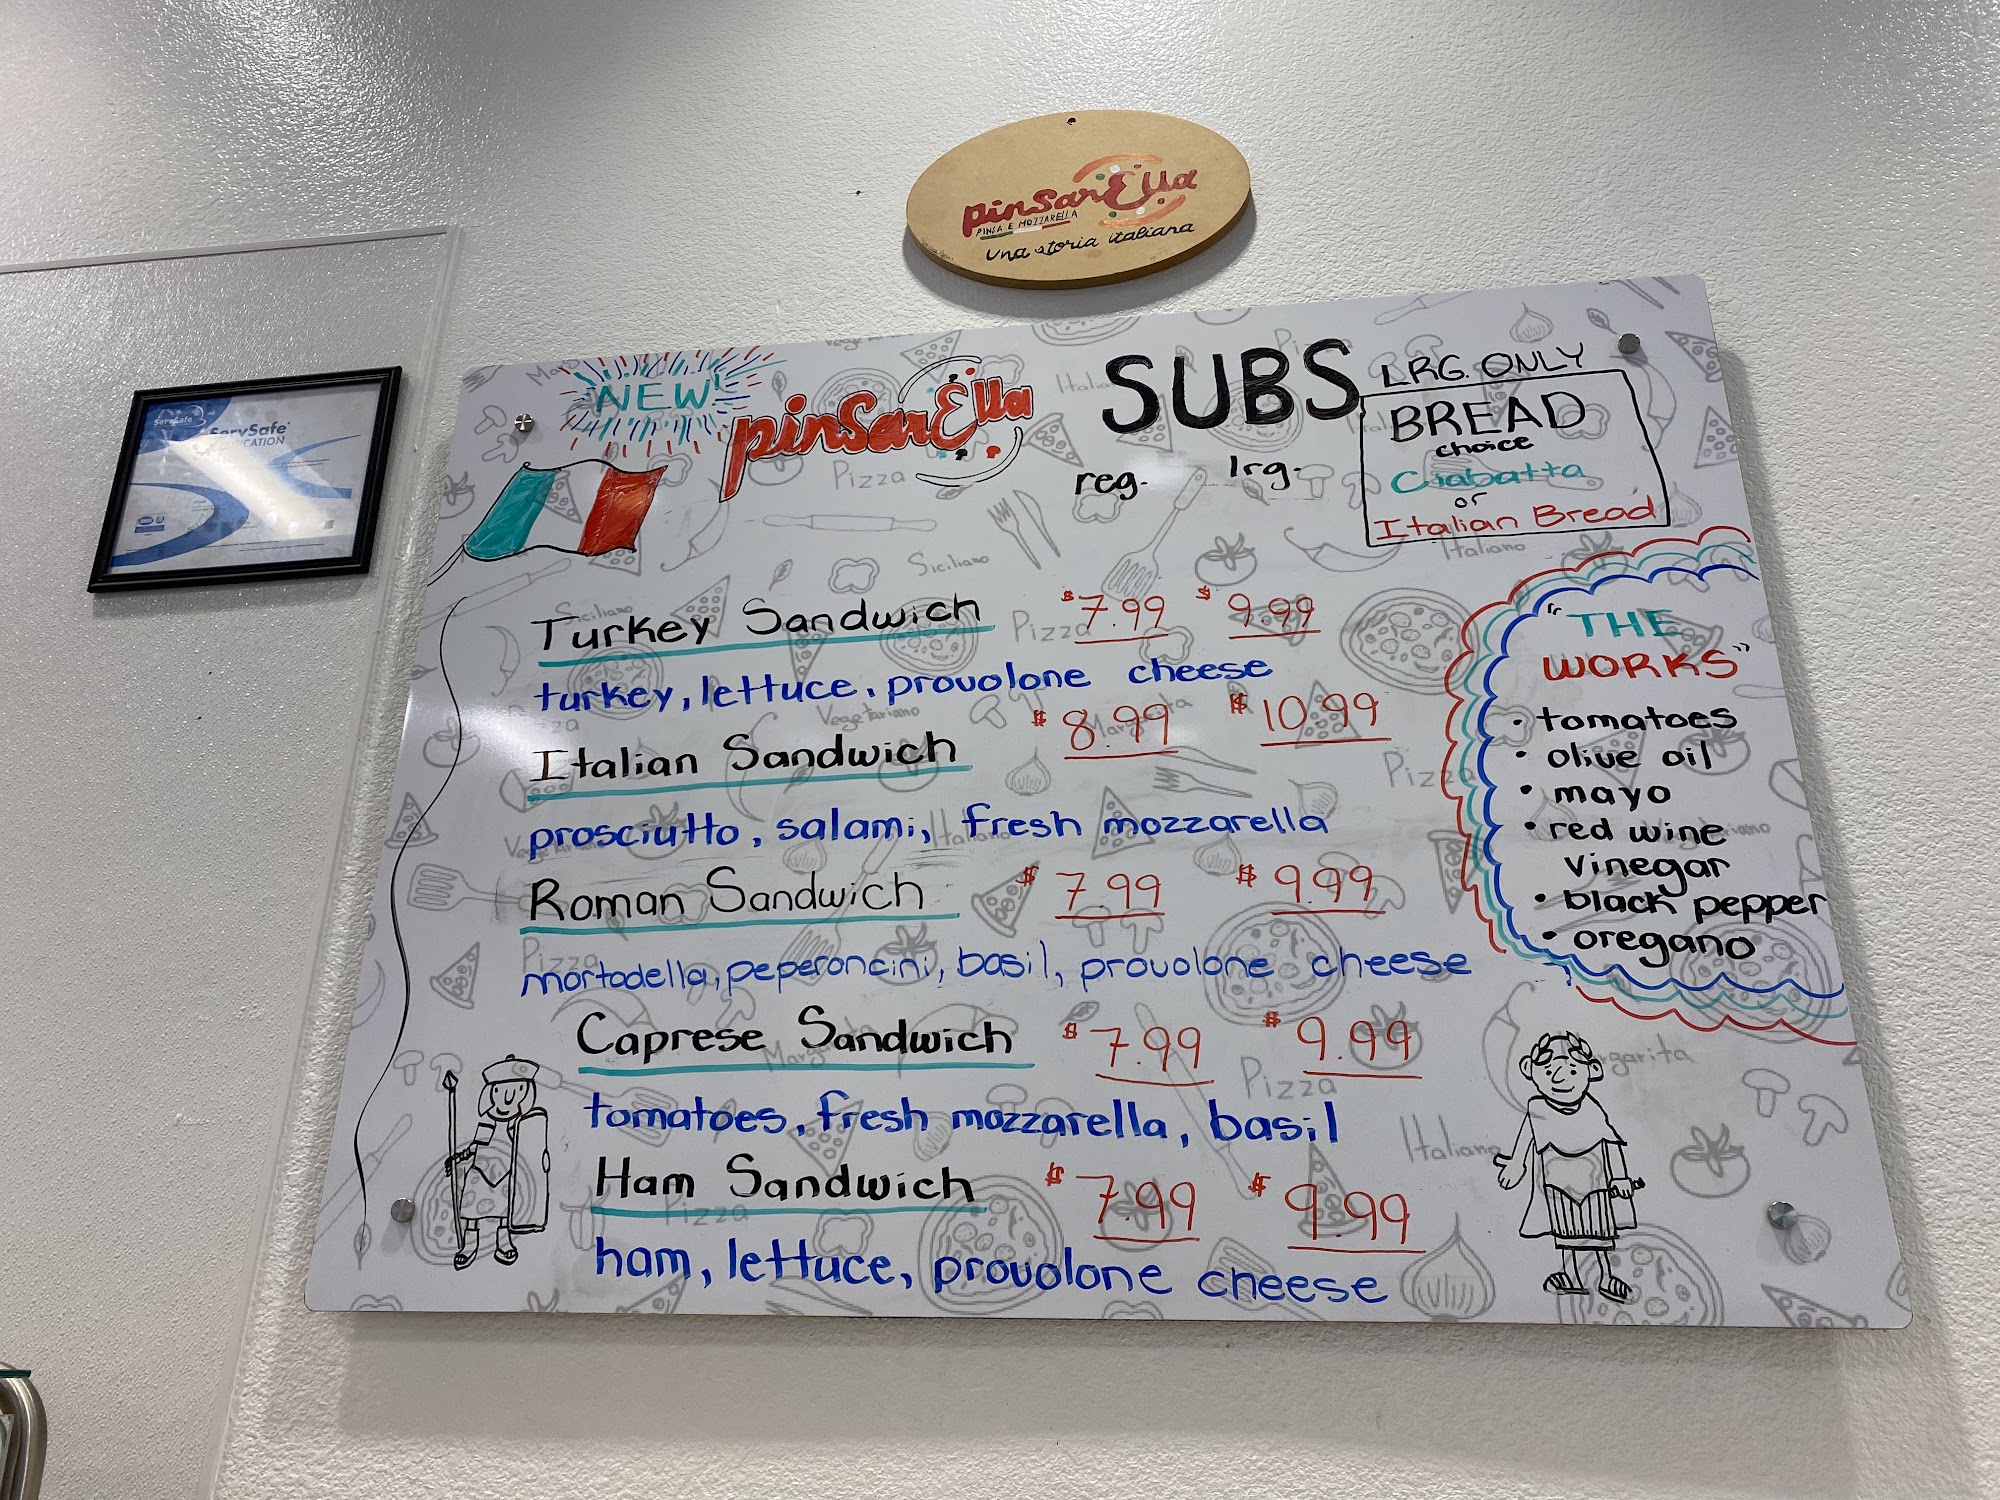 pinsarElla
PINSA E MOZZARELLA
una storia italiana
ServSafe
ServSafe
ICATION
NEW!
pinsarElla
SUBS
reg.
lrg.
LRG. ONLY
BREAD
choice
Ciabatta
or
Italian Bread
Turkey Sandwich $7.99 $9.99
turkey, lettuce, provolone cheese
Italian Sandwich $8.99 $10.99
prosciutto, salami, fresh mozzarella
Roman Sandwich $7.99 $9.99
mortadella, peperoncini, basil, provolone cheese
Caprese Sandwich $7.99 $9.99
tomatoes, fresh mozzarella, basil
Ham Sandwich $7.99 $9.99
ham, lettuce, provolone cheese
"THE
WORKS"
• tomatoes
• olive oil
• mayo
• red wine
vinegar
• black pepper
• oregano
Pizza
Siciliano
Italiano
Siciliano
Pizza
Vegetariano
Pizza
Pizza
Margarita
Pizza
Italiano
Pizza